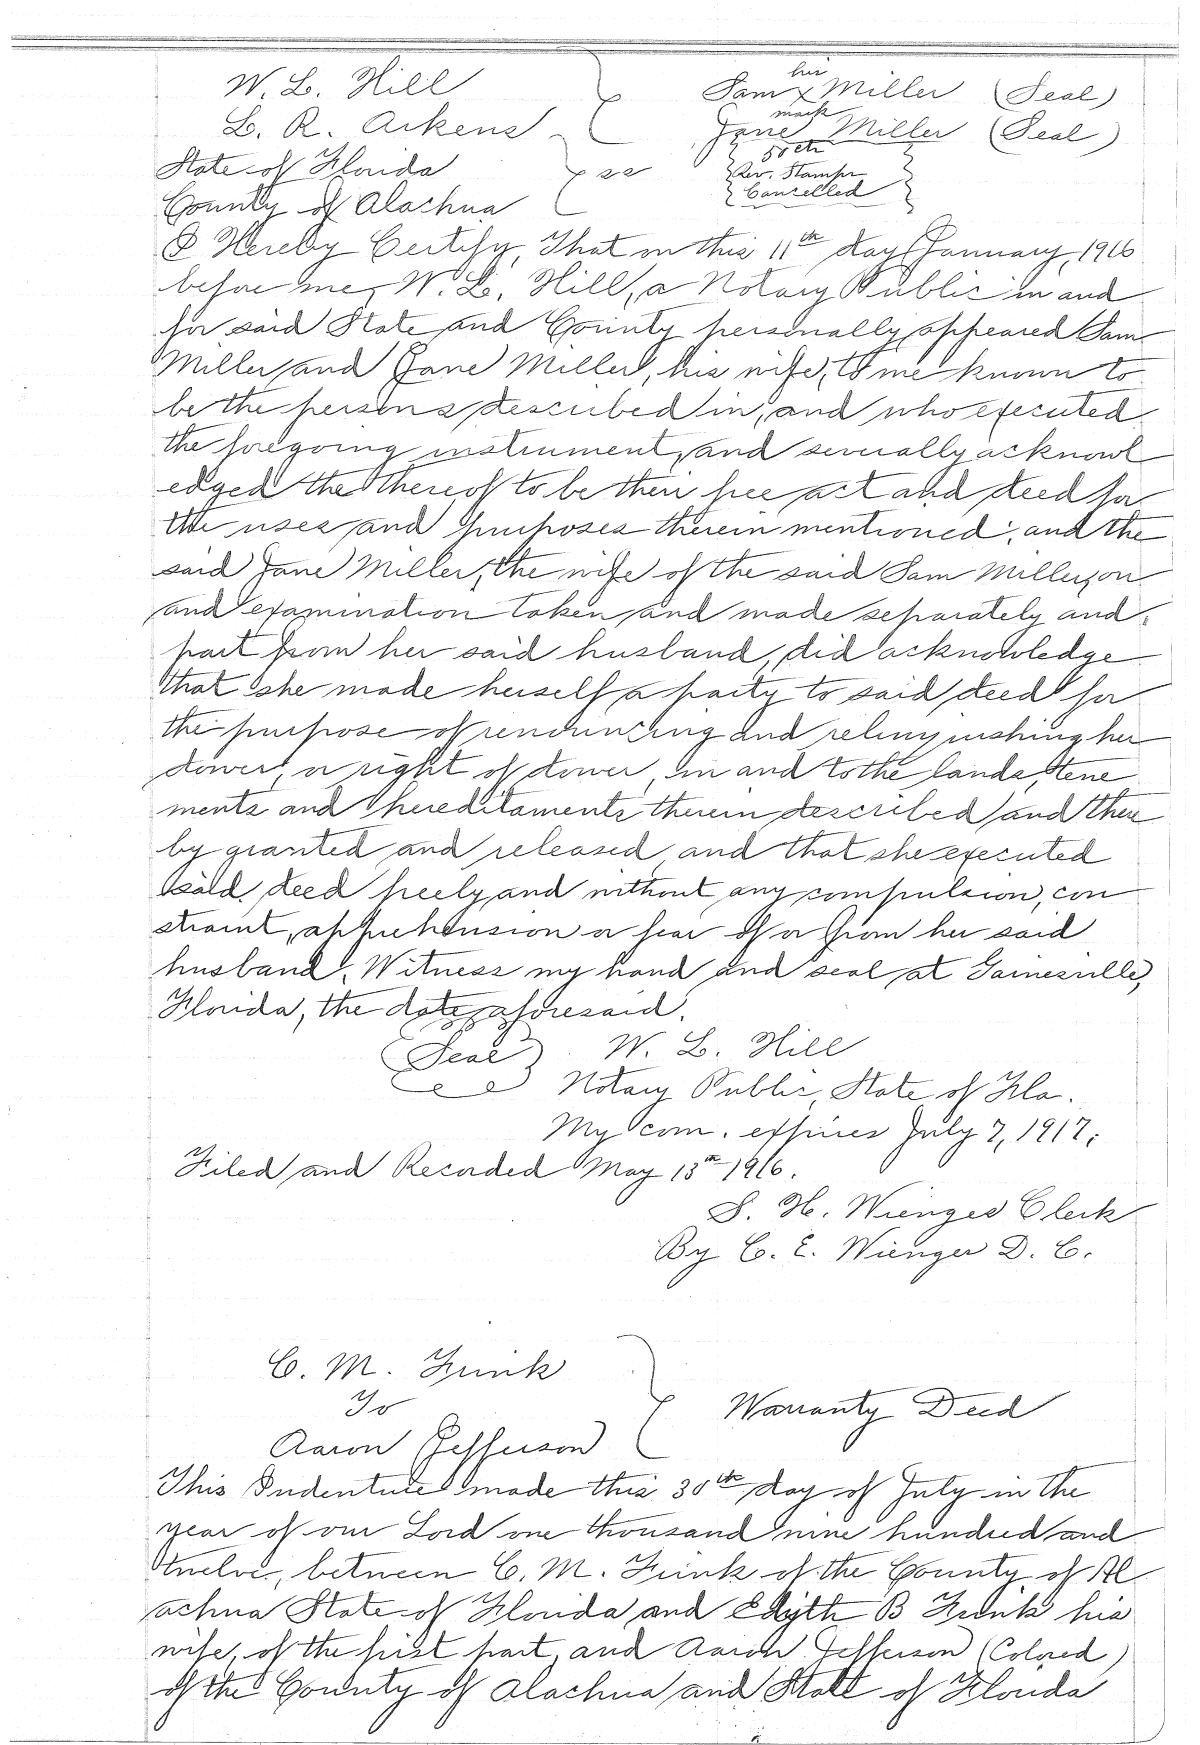 W. L. Hill
L. R. Arkens
his
Sam x Miller (Seal)
mark
Jane Miller (Seal)
State of Florida
County of Alachua
ss
50 cts
Rev. Stamps
Cancelled
I Hereby Certify, That on this 11th day January, 1916
before me, W. L. Hill, a Notary Public in and
for said State and County personally appeared Sam
Miller and Jane Miller, his wife, to me known to
be the persons described in, and who executed
the foregoing instrument, and severally acknowl
edged the thereof to be their free act and deed for
the uses and purposes therein mentioned; and the
said Jane Miller, the wife of the said Sam Miller, on
and examination taken and made separately and
part from her said husband, did acknowledge
that she made herself a party to said deed for
the purpose of renouncing and relinquishing her
dower, or right of dower, in and to the lands, tene
ments and hereditaments therein described and there
by granted and released, and that she executed
said deed freely and without any compulsion, con
straint, apprehension or fear of or from her said
husband. Witness my hand and seal at Gainesville,
Florida, the date aforesaid.
(Seal) W. L. Hill
Notary Public, State of Fla.
My com. expires July 7, 1917.
Filed and Recorded May 13th 1916.
S. H. Wienges Clerk
By C. E. Wienges D. C.
C. M. Funk
To
Aaron Jefferson
Warranty Deed
This Indenture made this 30th day of July in the
year of our Lord one thousand nine hundred and
twelve, between C. M. Funk of the County of Al
achua State of Florida and Edyth B Funk his
wife, of the first part, and Aaron Jefferson (Colored)
of the County of Alachua and State of Florida